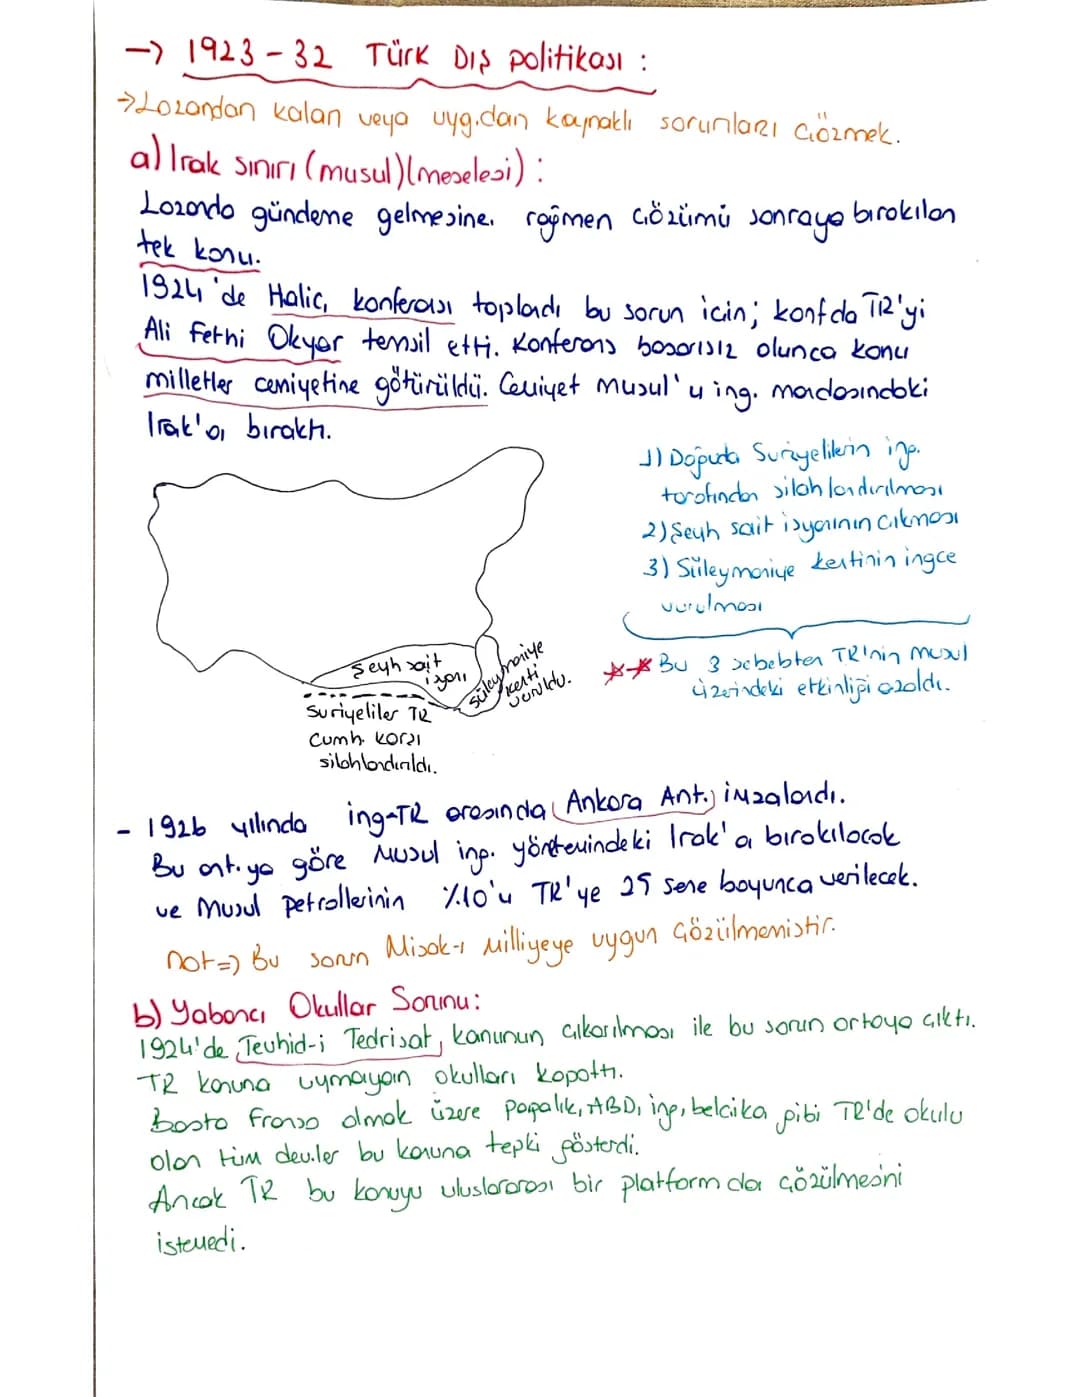 → 1923-32 Türk Dış politikası :
→ Lozandan kalan veya uyg.dan kaynaklı sorunları çözmek.
a) Irak sınırı (musul)(meselesi) :
Lozanda gündeme gelmesine rağmen çözümü sonraya bırakılan
tek konu.
1924'de Haliç konferası toplandı bu sorun için; konfda TR'yi
Ali Fethi Okyar temsil etti. Konferans başarısız olunca konu
milletler cemiyetine götürüldü. Cemiyet Musul'u ing. mandasındaki
Irak'a bıraktı.
1) Doğuda Suriyelilerin ing.
tarafından silahlandırılması
2) Şeyh sait isyanının çıkması
3) Süleymaniye kentinin ingce
vurulması
** Bu 3 sebebten TR'nin musul
üzerindeki etkinliği azaldı.
Şeyh sait
isyanı
Süleymaniye
kenti
vuruldu.
Suriyeliler TR
Cumh. karşı
silahlandırıldı.
- 1926 yılında ing-TR arasında Ankara Ant. imzalandı.
Bu ant.ya göre Musul ing. yönetemindeki Irak'a bırakılacak
ve Musul petrollerinin %10'u TR'ye 25 sene boyunca verilecek.
not=> Bu sorun Misak-ı Milliyeye uygun çözülmemiştir.
b) Yabancı Okullar Sorunu:
1924'de Tevhid-i Tedrisat, kanunun çıkarılması ile bu sorun ortaya çıktı.
TR kanuna uymayan okulları kapattı.
Başta Fransa olmak üzere Papalık, ABD, ing, belçika gibi TR'de okulu
olan tüm dev.ler bu kanuna tepki gösterdi.
Ancak TR bu konuyu uluslararası bir platformda çözülmesini
istemedi.